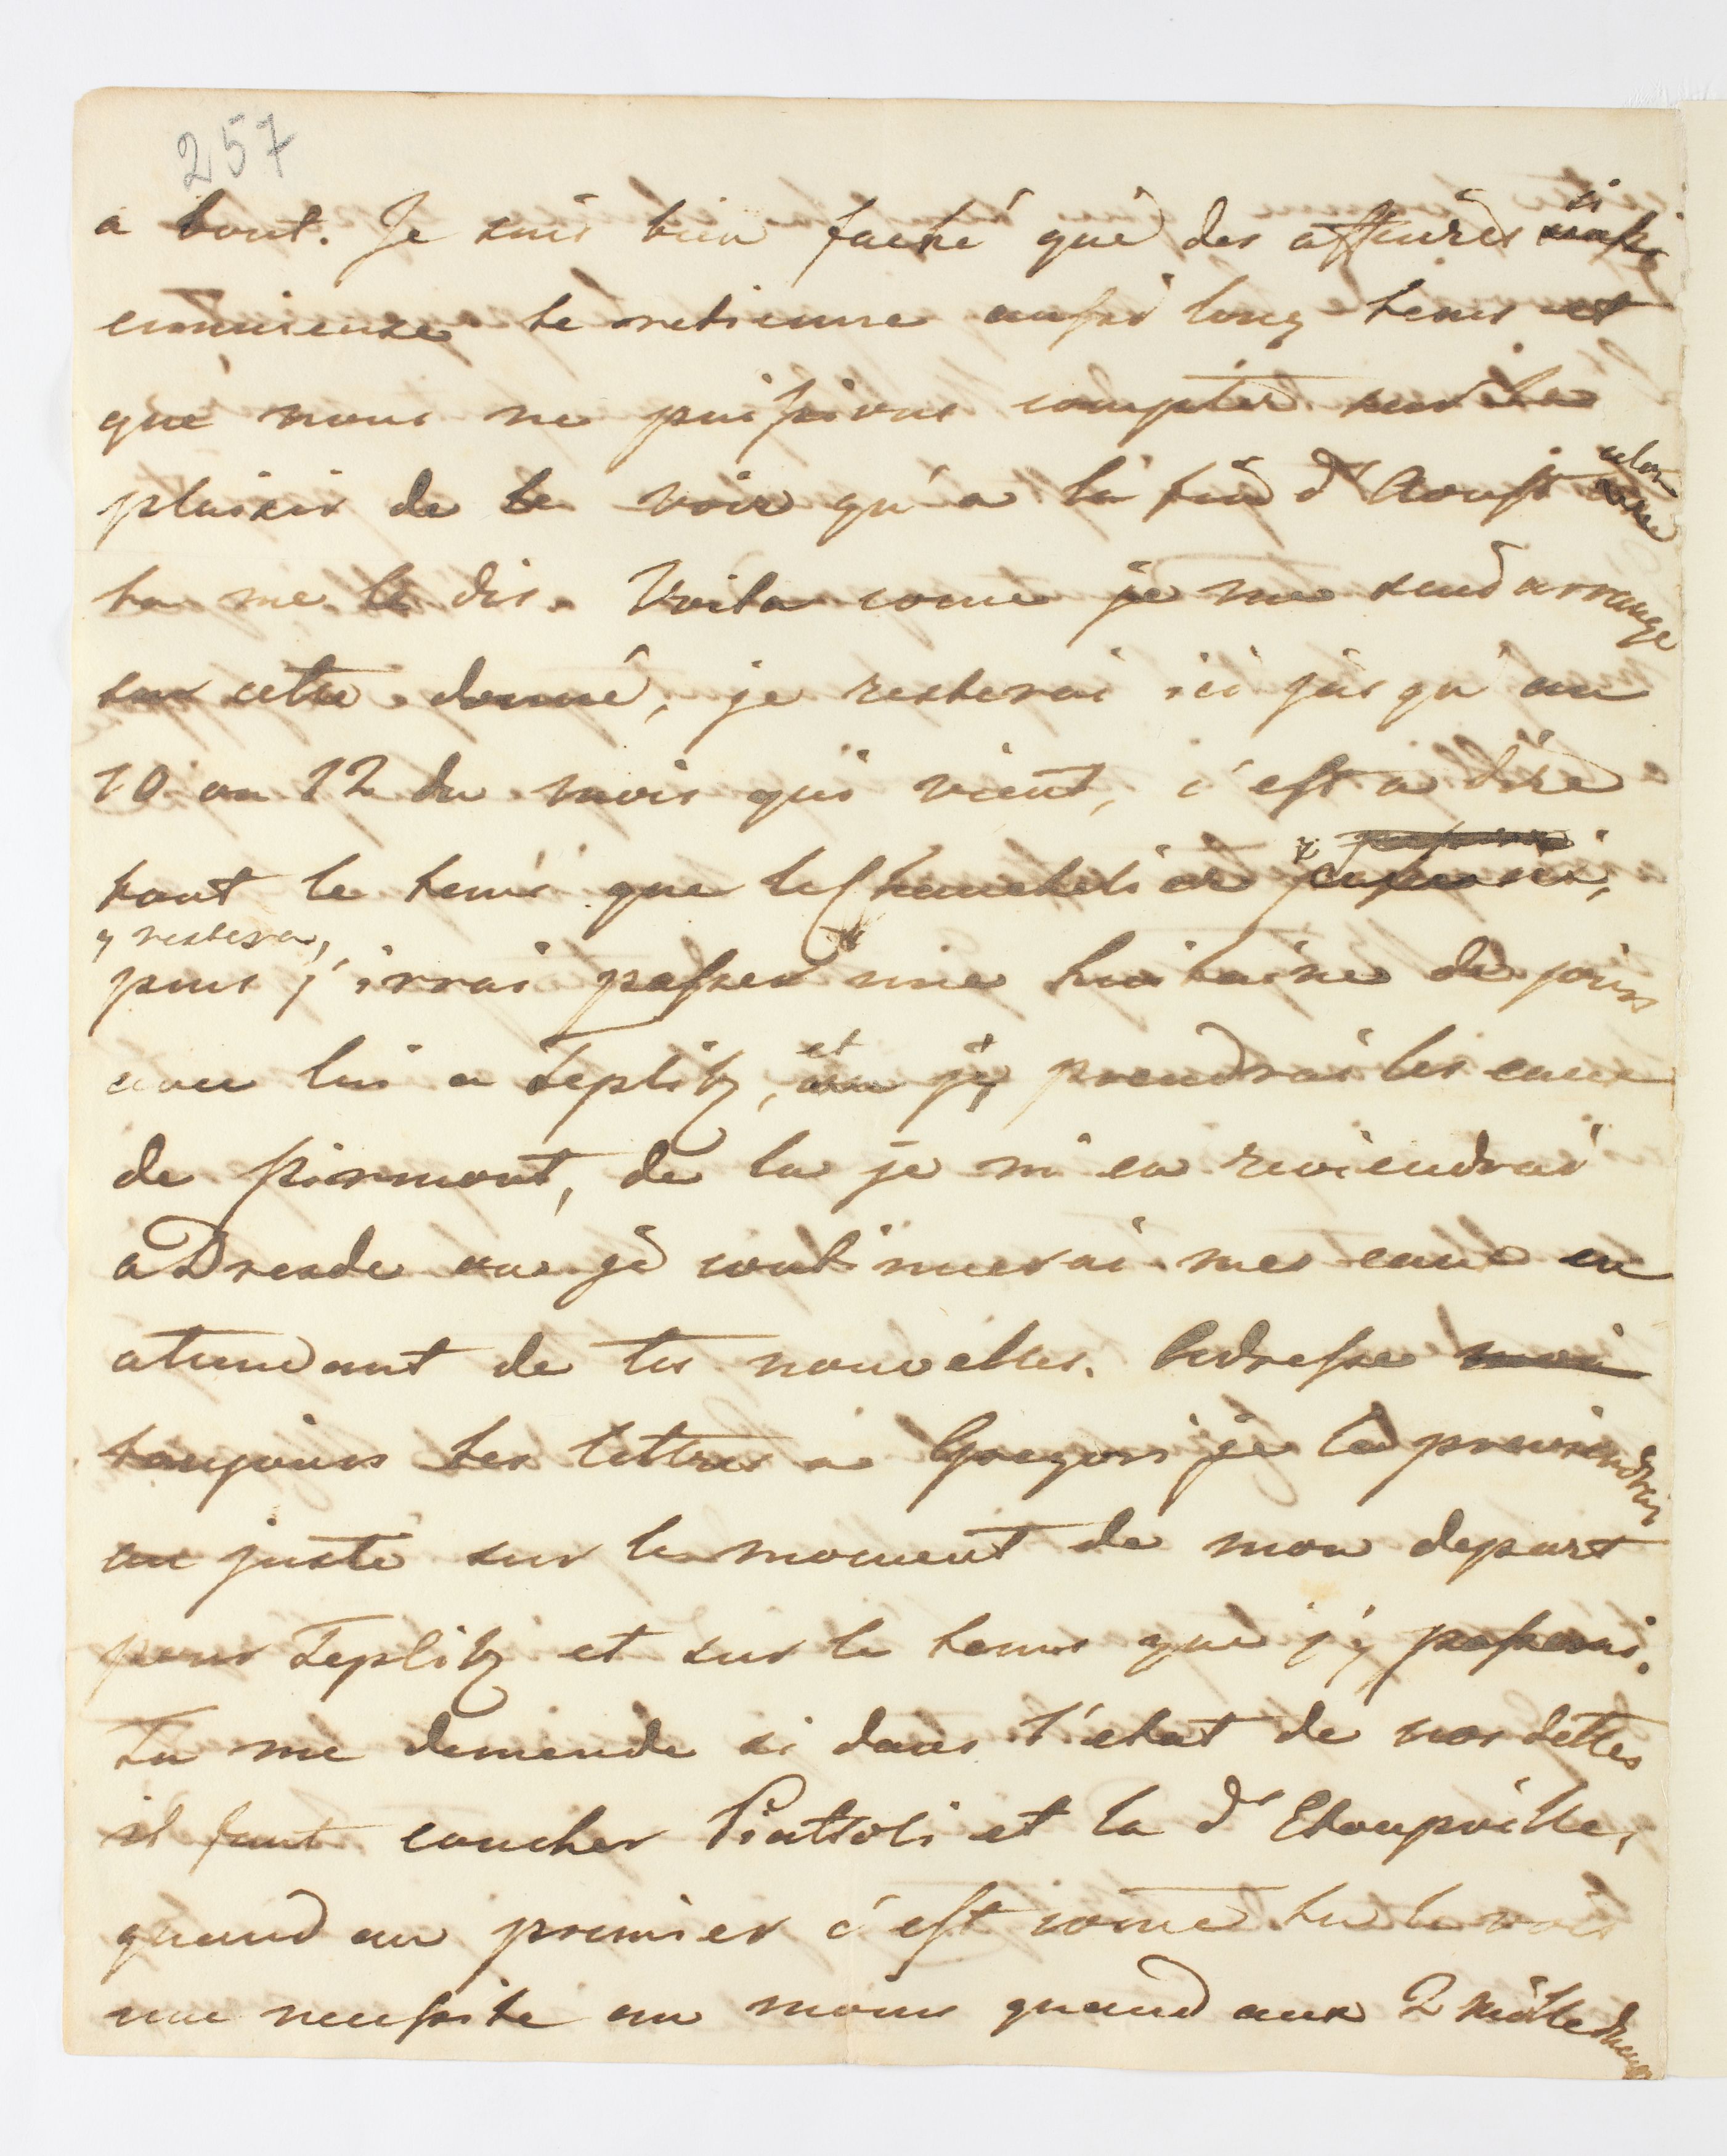 257
a bout. Je suis bien faché que des affaires si
ennuieuse te retienne aussi long tems et
que nous ne puissions compter sur le
plaisir de te voir qu'a la fin d'Aoust
tu me le dis. Voila come je me suis arrange
sur cette donné, je resterai ici jus qu'au
10 ou 12 du mois qui vient, c'est a dire
tout le tems que le Chanchelier
y restera,
puis j'irrai passer une huitaine de jours
avec lui a Teplitz, et j'y prendrai les eaux
de pirmont, de la je m'en reviendrai
a Dresde ou je continuerai mes eaux en
attendant de tes nouvelles. Adresse moi
toujours tes lettres a Gregori je le previendrai
au juste sur le moment de mon depart
pour Teplitz et sur le tems que j'y passerai.
Tu me demende si dans l'etat de nos dettes
il faut coucher Piattoli et la d'Etoupville,
quand au premier c'est come tu le vois
une necessite au moins quand aux 2 mille